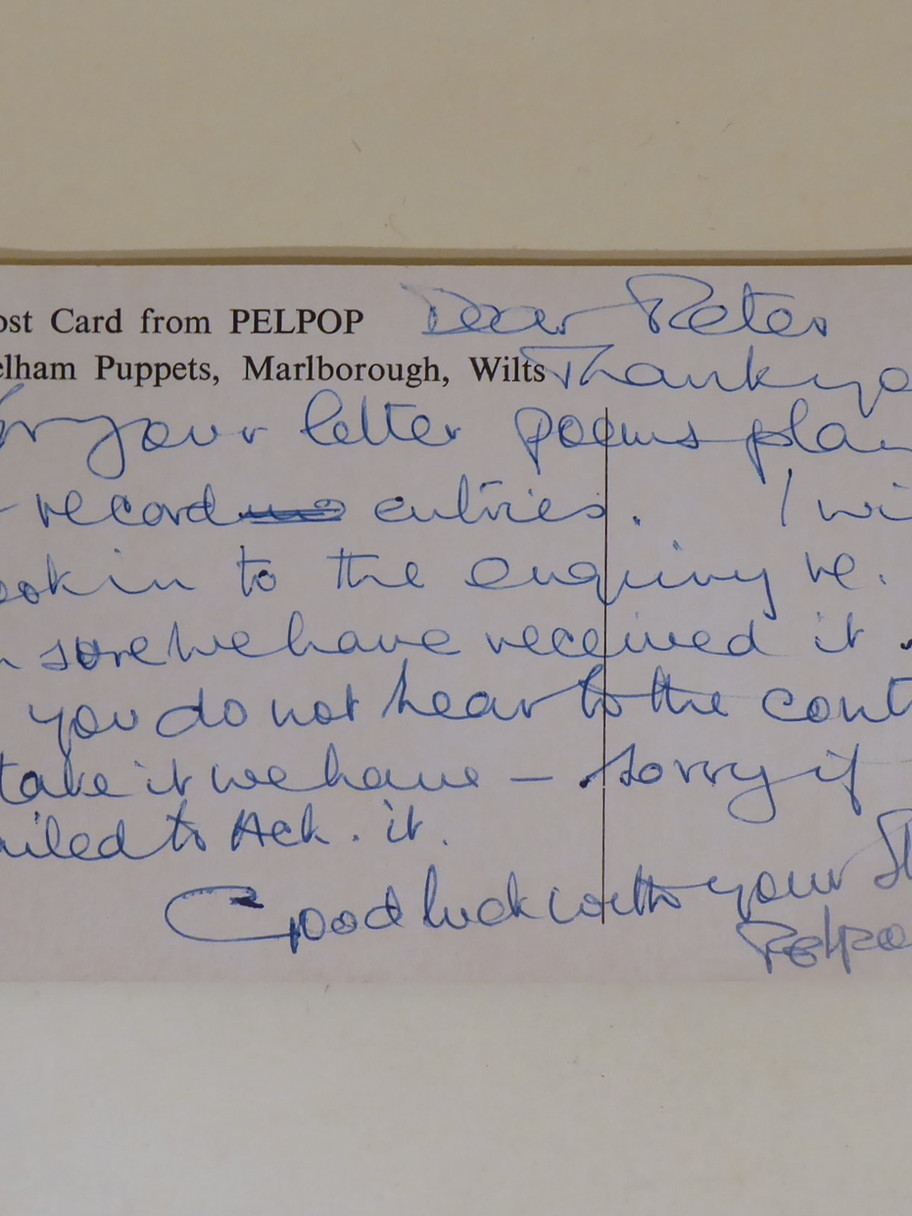 ost Card from PELPOP Dear Peter
elham Puppets, Marlborough, Wilts Thank yo
for your letter poems plan
record entries. I wi
ook in to the enquiry re.
sure we have received it
you do not hear to the cont
take it we have – sorry if
ailed to Ack. it.
Good luck with your
Pelpo